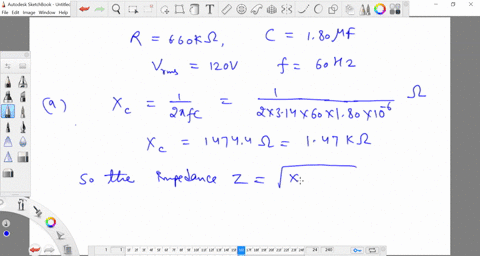 Autodesk SketchBook - Untitled
R = 660KΩ, C = 1.80 μf
Vrms = 120V f = 60HZ
(a) Xc = 1/2πfC = 1/2×3.14×60×1.80×10⁻⁶ Ω
Xc = 1474.4 Ω = 1.47 KΩ
So the impedance Z = √X